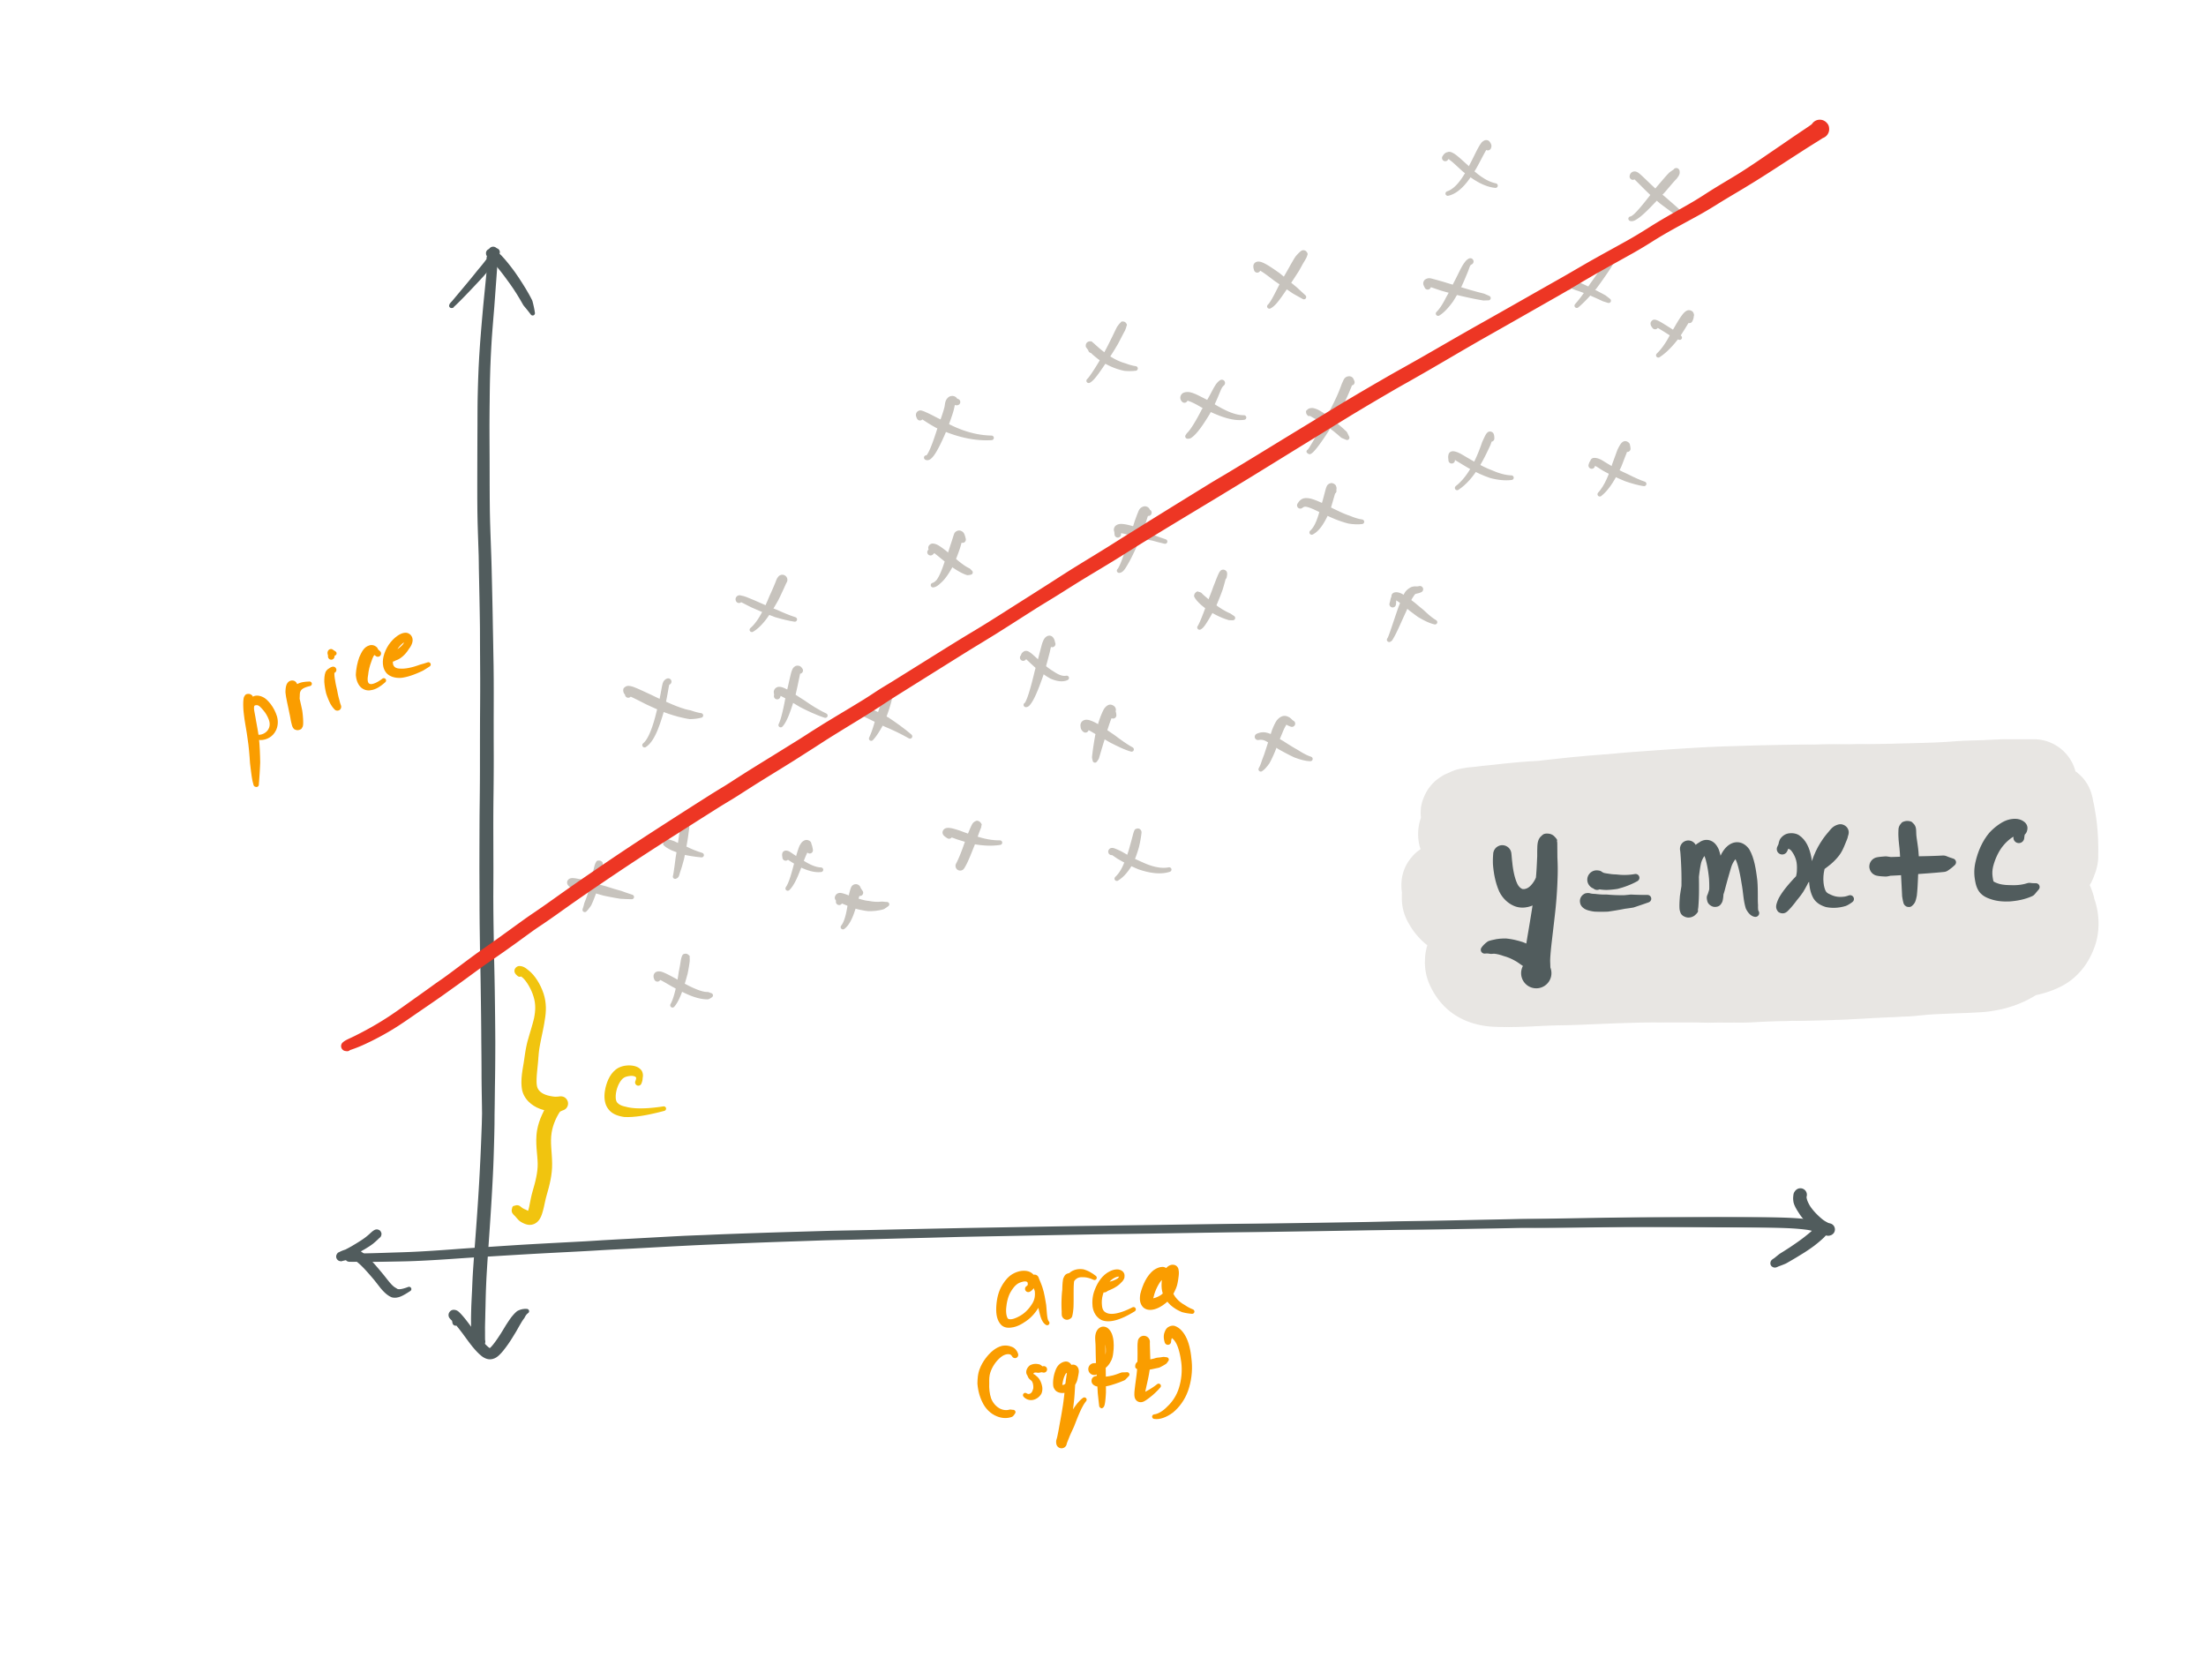 price
y=mx+c
c
area
(sqft)